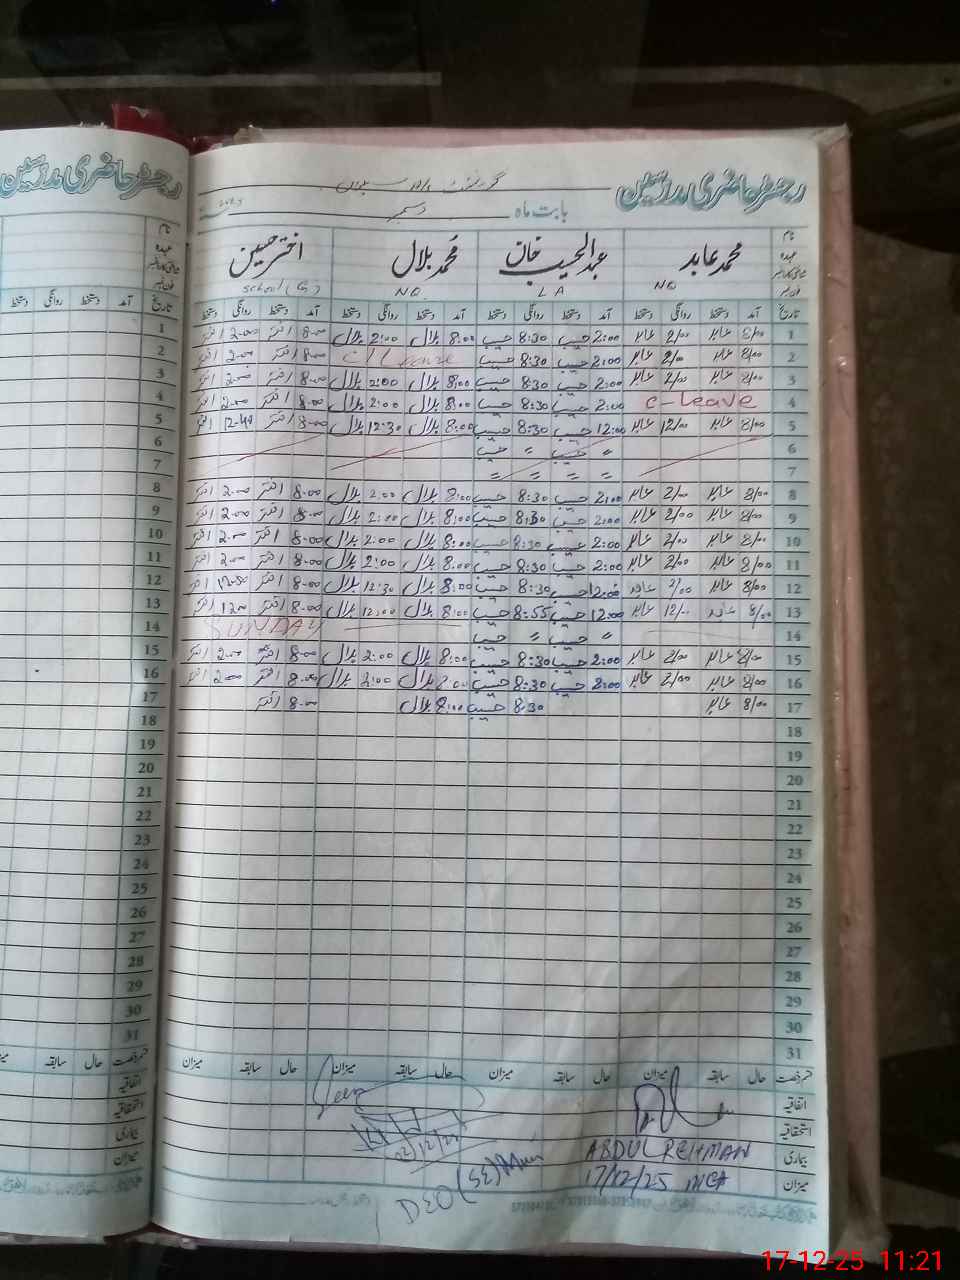 رجسٹر حاضری مدرسین
رجسٹر حاضری مدرسین گورنمنٹ
بابت ماہ دسمبر
نام محمد عابد عبدالحبیب خان محمد بلال اختر حسین
عہدہ NQ LA NQ School (G)
تاریخ آمد دستخط روانگی دستخط آمد دستخط روانگی دستخط آمد دستخط روانگی دستخط آمد دستخط روانگی دستخط
1 8/00 عابد 2/00 عابد 2:00 حبیب 8:30 حبیب 8:00 بلال 2:00 بلال 8-00 اختر 2-00 اختر
2 8/00 عابد 2/00 عابد 2:00 حبیب 8:30 حبیب Leave 8-00 اختر 2-00 اختر
3 8/00 عابد 2/00 عابد 2:00 حبیب 8:30 حبیب 8:00 بلال 2:00 بلال 8-00 اختر 2-00 اختر
4 C-Leave 2:00 حبیب 8:30 حبیب 8:00 بلال 2:00 بلال 8-00 اختر 2-00 اختر
5 8/00 عابد 12/00 عابد 12:00 حبیب 8:30 حبیب 8:00 بلال 12:30 بلال 8-00 اختر اختر
6 〃 حبیب 〃 حبیب
7 〃 〃 〃 〃
8 8/00 عابد 2/00 عابد 2:00 حبیب 8:30 حبیب 8:00 بلال 2:00 بلال 8-00 اختر 2-00 اختر
9 8/00 عابد 2/00 عابد 2:00 حبیب 8:30 حبیب 8:00 بلال 2:00 بلال 8-00 اختر 2-00 اختر
10 8/00 عابد 2/00 عابد 2:00 حبیب 8:30 حبیب 8:00 بلال 2:00 بلال 8-00 اختر 2-00 اختر
11 8/00 عابد 2/00 عابد 2:00 حبیب 8:30 حبیب 8:00 بلال 2:00 بلال 8-00 اختر 2-00 اختر
12 8/00 عابد عابد 12:00 حبیب 8:30 حبیب 8:00 بلال 12:30 بلال 8-00 اختر اختر
13 8/00 عابد 12/00 عابد 12:00 حبیب 8:55 حبیب 8:00 بلال 12:00 بلال 8-00 اختر اختر
14 〃 حبیب 〃 حبیب SUNDAY
15 8/00 عابد 2/00 عابد 2:00 حبیب 8:30 حبیب 8:00 بلال 2:00 بلال 8-00 اختر 2-00 اختر
16 8/00 عابد 2/00 عابد 2:00 حبیب 8:30 حبیب 8:00 بلال 2:00 بلال 8-00 اختر 2-00 اختر
17 8/00 عابد 8:30 حبیب 8:00 بلال 8-00 اختر
18
19
20
21
22
23
24
25
26
27
28
29
30
31
حال سابقہ میزان حال سابقہ میزان حال سابقہ میزان حال سابقہ میزان
اتفاقیہ
استحقاقیہ
بیماری
میزان
02/12/25
DEO (SE)
ABDUL REHMAN
17/12/25 MEA
آمد دستخط روانگی دستخط
1
2
3
4
5
6
7
8
9
10
11
12
13
14
15
16
17
18
19
20
21
22
23
24
25
26
27
28
29
30
31
حال سابقہ
اتفاقیہ
استحقاقیہ
بیماری
میزان
17-12-25 11:21